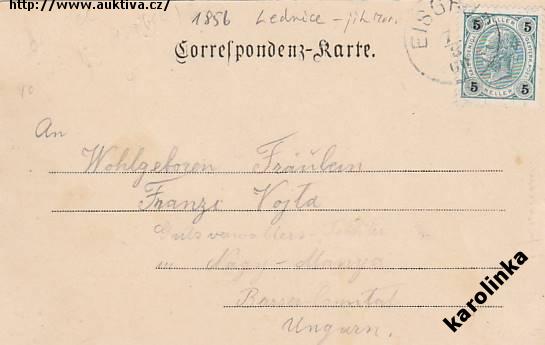 http://www.auktiva.cz/
1856 Lednice - 
Correspondenz-Karte.
EISGR
5 5
HELLER
5 5
An
Wohlgeboren Fräulein
Franzi Vojta
Gutsverwalters-
in Nagy-Manya
Ungarn.
karolinka